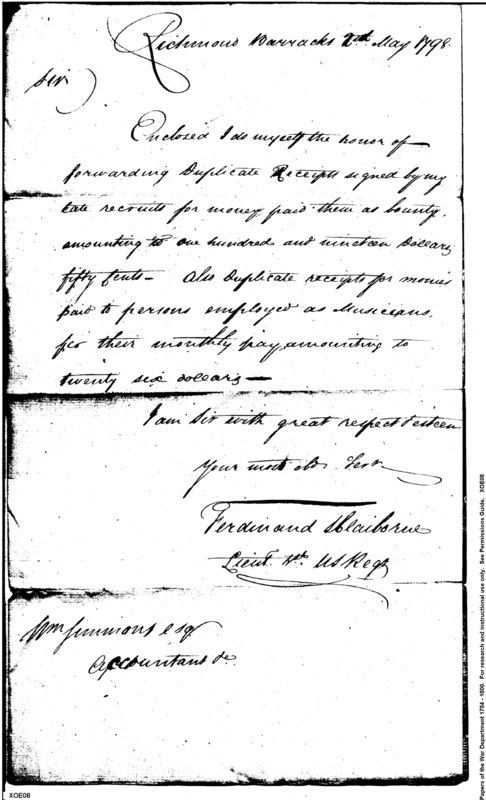 Richmond Barracks 2nd May 1798.
Sir
Enclosed I do myself the honor of
forwarding Duplicate Receipts signed by my
late recruits for money paid them as bounty.
amounting to one hundred and nineteen Dollars
fifty Cents— Also Duplicate receipts for monies
paid to persons employed as Musicians.
for their monthly pay, amounting to
twenty six dollars—
I am Sir with great respect & esteem
Your most obt. Servt
Ferdinand L Claiborne
Lieut. USRegt
Wm Simmons esqr
Accountant &c
Papers of the War Department 1784 - 1800. For research and instructional use only. See Permissions Guide. XOE08
XOE08